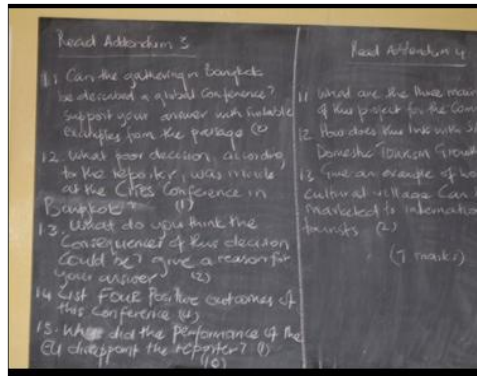 Read Addendum 3
1.1 Can the gathering in Bangkok
be described a global Conference?
Support your answer with suitable
examples from the passage
1.2. What poor decision, according
to the reporter, was made
at the CITES Conference in
Bangkok? (1)
1.3. What do you think the
Consequences of this decision
Could be? give a reason for
your answer (2)
1.4 List FOUR Positive outcomes of
this Conference (4)
1.5. did the performance of the
EU disappoint the reporter? (1)
(10)
Read Addendum 4
1.1 What are the three main
of this project for the Com
1.2 How does this link with
Domestic Tourism Growth
1.3 Give an example of
Cultural village Can
marketed to internation
tourists (2)
(7 marks)